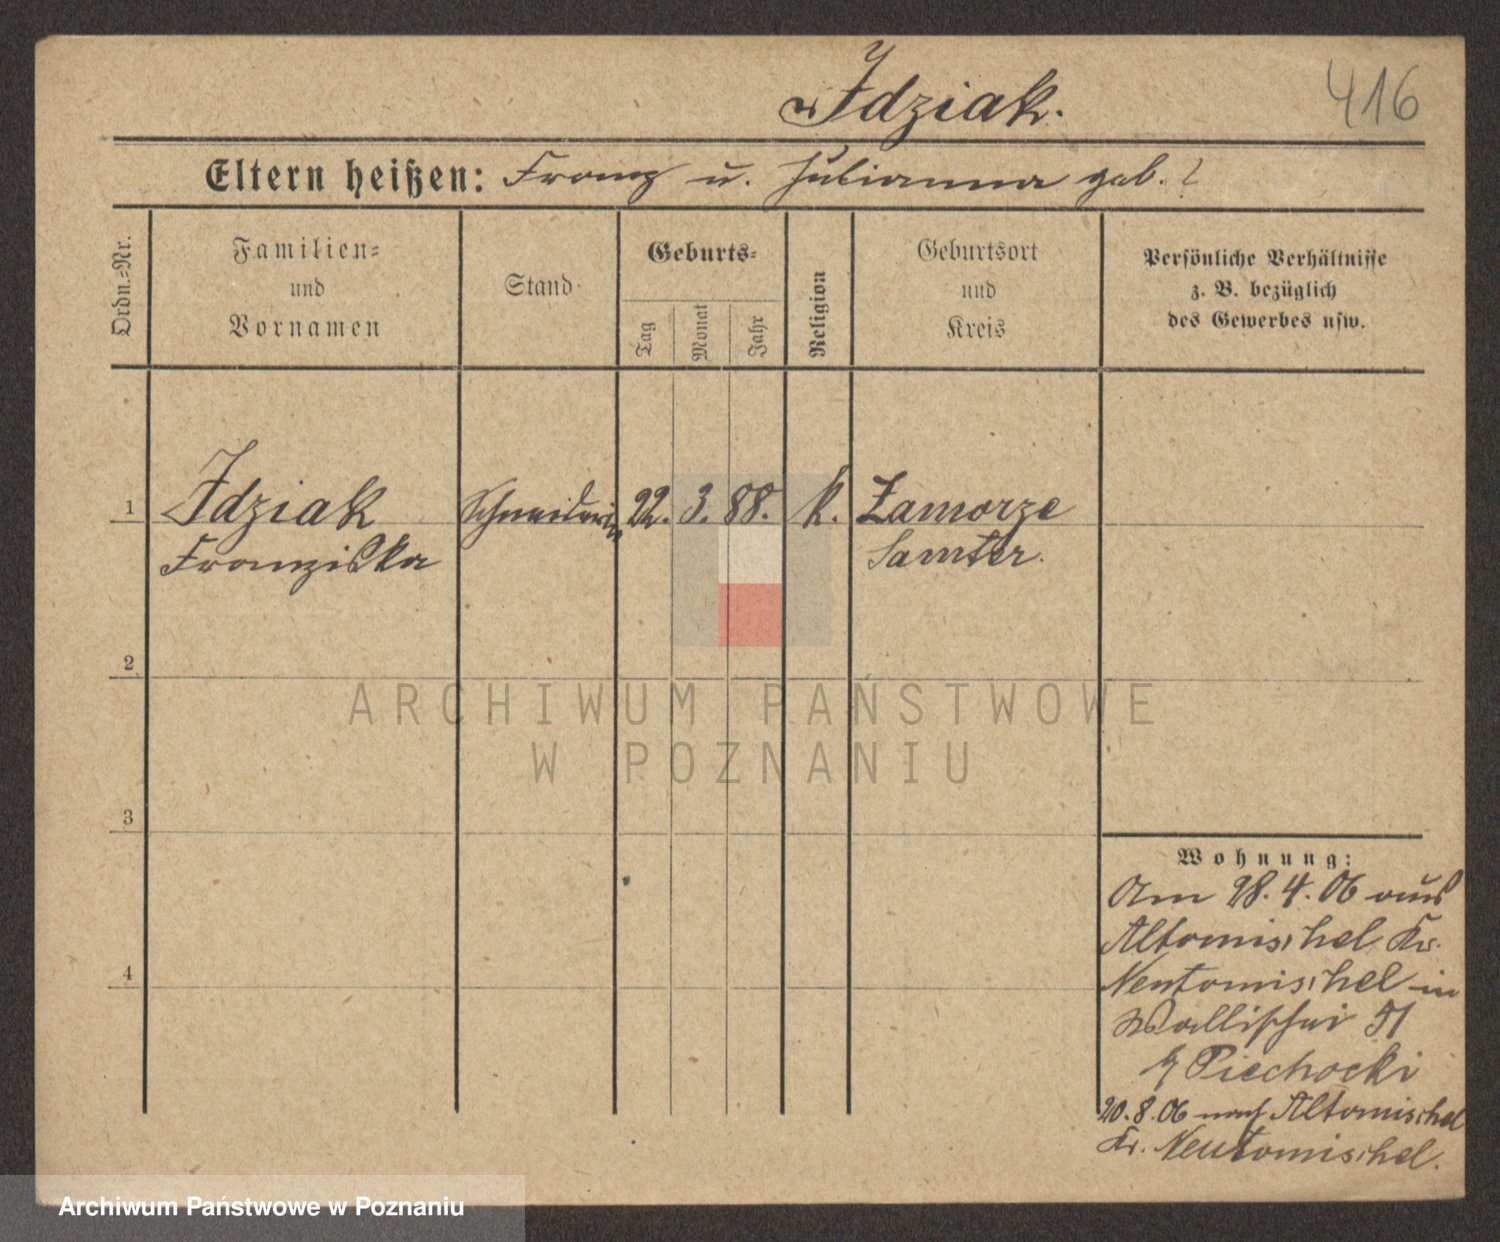 Idziak.
416
Eltern heißen: Franz u. Julianna geb. ?
Ordn.=Nr.
Familien=
und
Vornamen
Stand
Geburts=
Tag
Monat
Jahr
Religion
Geburtsort
und
Kreis
Persönliche Verhältnisse
z. B. bezüglich
des Gewerbes usw.
1 Idziak Schneiderin 22. 3. 88. k. Zamorze
Franziska Samter.
2
3
4
ARCHIWUM PAŃSTWOWE
W POZNANIU
Wohnung:
Am 28.4.06 aus
Altomischel Kr.
Neutomischel in
Wallischei 51
b/ Piechocki
20.8.06 nach Altomischel
Kr. Neutomischel.
Archiwum Państwowe w Poznaniu